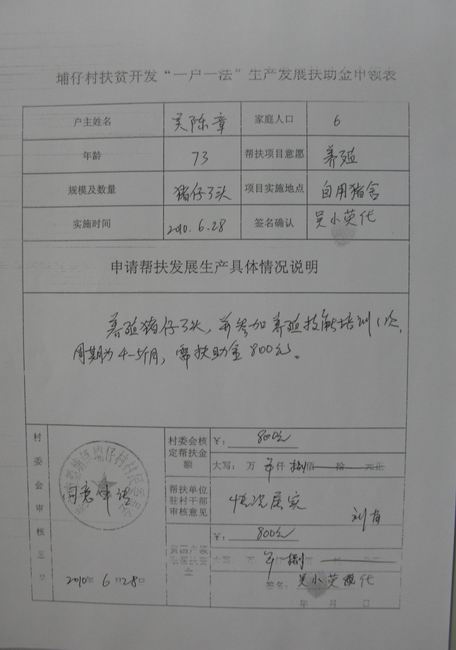 埔仔村扶贫开发“一户一法”生产发展扶助金申领表
户主姓名 吴陈章 家庭人口 6
年龄 73 帮扶项目意愿 养殖
规模及数量 猪仔3头 项目实施地点 自用猪舍
实施时间 2010.6.28 签名确认 吴小英代
申请帮扶发展生产具体情况说明
养殖猪仔3头，并参加养殖技能培训1次，
周期为4-5个月，需扶助金800元。
村委会审核意见
同意申请
2010年6月28日
村委会核定帮扶金额
¥： 800元
大写： 万 仟 捌佰 拾 元
帮扶单位驻村干部审核意见
情况属实
¥： 800元
大写： 万 捌
签名： 吴小英代
年 月 日